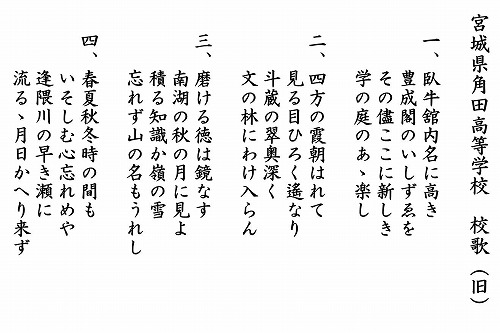 宮城県角田高等学校　校歌（旧）
一、臥牛舘内名に高き
豊成閣のいしずゑを
その儘ここに新しき
学の庭のあゝ楽し
二、四方の霞朝はれて
見る目ひろく遙なり
斗蔵の翠奥深く
文の林にわけ入らん
三、磨ける徳は鏡なす
南湖の秋の月に見よ
積る知識か嶺の雪
忘れず山の名もうれし
四、春夏秋冬時の間も
いそしむ心忘れめや
逢隈川の早き瀬に
流るゝ月日かへり来ず